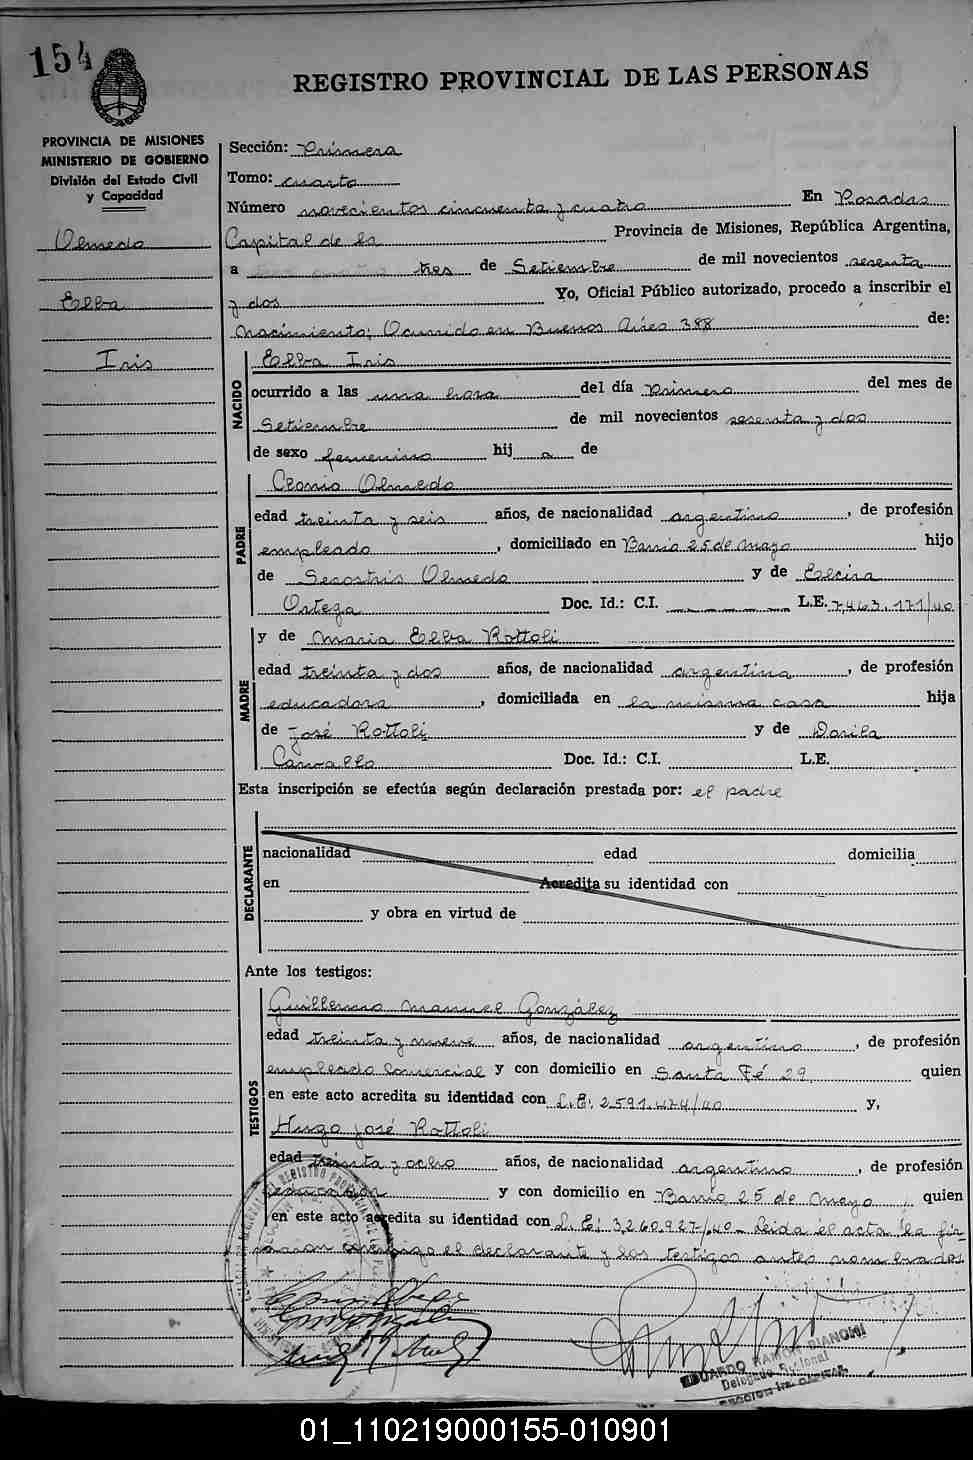 154
REGISTRO PROVINCIAL DE LAS PERSONAS
PROVINCIA DE MISIONES
MINISTERIO DE GOBIERNO
División del Estado Civil
y Capacidad
Olmedo
Elba
Iris
Sección: Primera
Tomo: cuarto
Número novecientos cincuenta y cuatro En Posadas
Capital de la Provincia de Misiones, República Argentina,
a tres de Setiembre de mil novecientos sesenta
y dos Yo, Oficial Público autorizado, procedo a inscribir el
Nacimiento; Ocurrido en Buenos Aires 388 de:
NACIDO
Elba Iris
ocurrido a las una hora del día Primero del mes de
Setiembre de mil novecientos sesenta y dos
de sexo femenino hij a de
PADRE
Olmedo
edad treinta y seis años, de nacionalidad argentino, de profesión
empleado, domiciliado en Barrio 25 de Mayo hijo
de Secostris Olmedo y de Elcira
Ortega Doc. Id.: C.I. L.E. 7,463.171/40
MADRE
y de Maria Elba Rottoli
edad treinta y dos años, de nacionalidad argentina, de profesión
educadora, domiciliada en la misma casa hija
de José Rottoli y de Dorila
Carvallo Doc. Id.: C.I. L.E.
Esta inscripción se efectúa según declaración prestada por: el padre
DECLARANTE
nacionalidad edad domicilia
en Acredita su identidad con
y obra en virtud de
Ante los testigos:
TESTIGOS
Guillermo Manuel González
edad treinta y nueve años, de nacionalidad argentino, de profesión
empleado Comercial y con domicilio en Santa Fé 29, quien
en este acto acredita su identidad con L.E. 2591.474/40 y,
Hugo José Rottoli
edad treinta y ocho años, de nacionalidad argentino, de profesión
educador y con domicilio en Barrio 25 de Mayo, quien
en este acto acredita su identidad con L.E. 3,260.927/40 - Leida el acta la fir
maron conmigo el declarante y los testigos antes nombrados
EDUARDO RAMON BIANCHI
Delegado Seccional
01_110219000155-010901